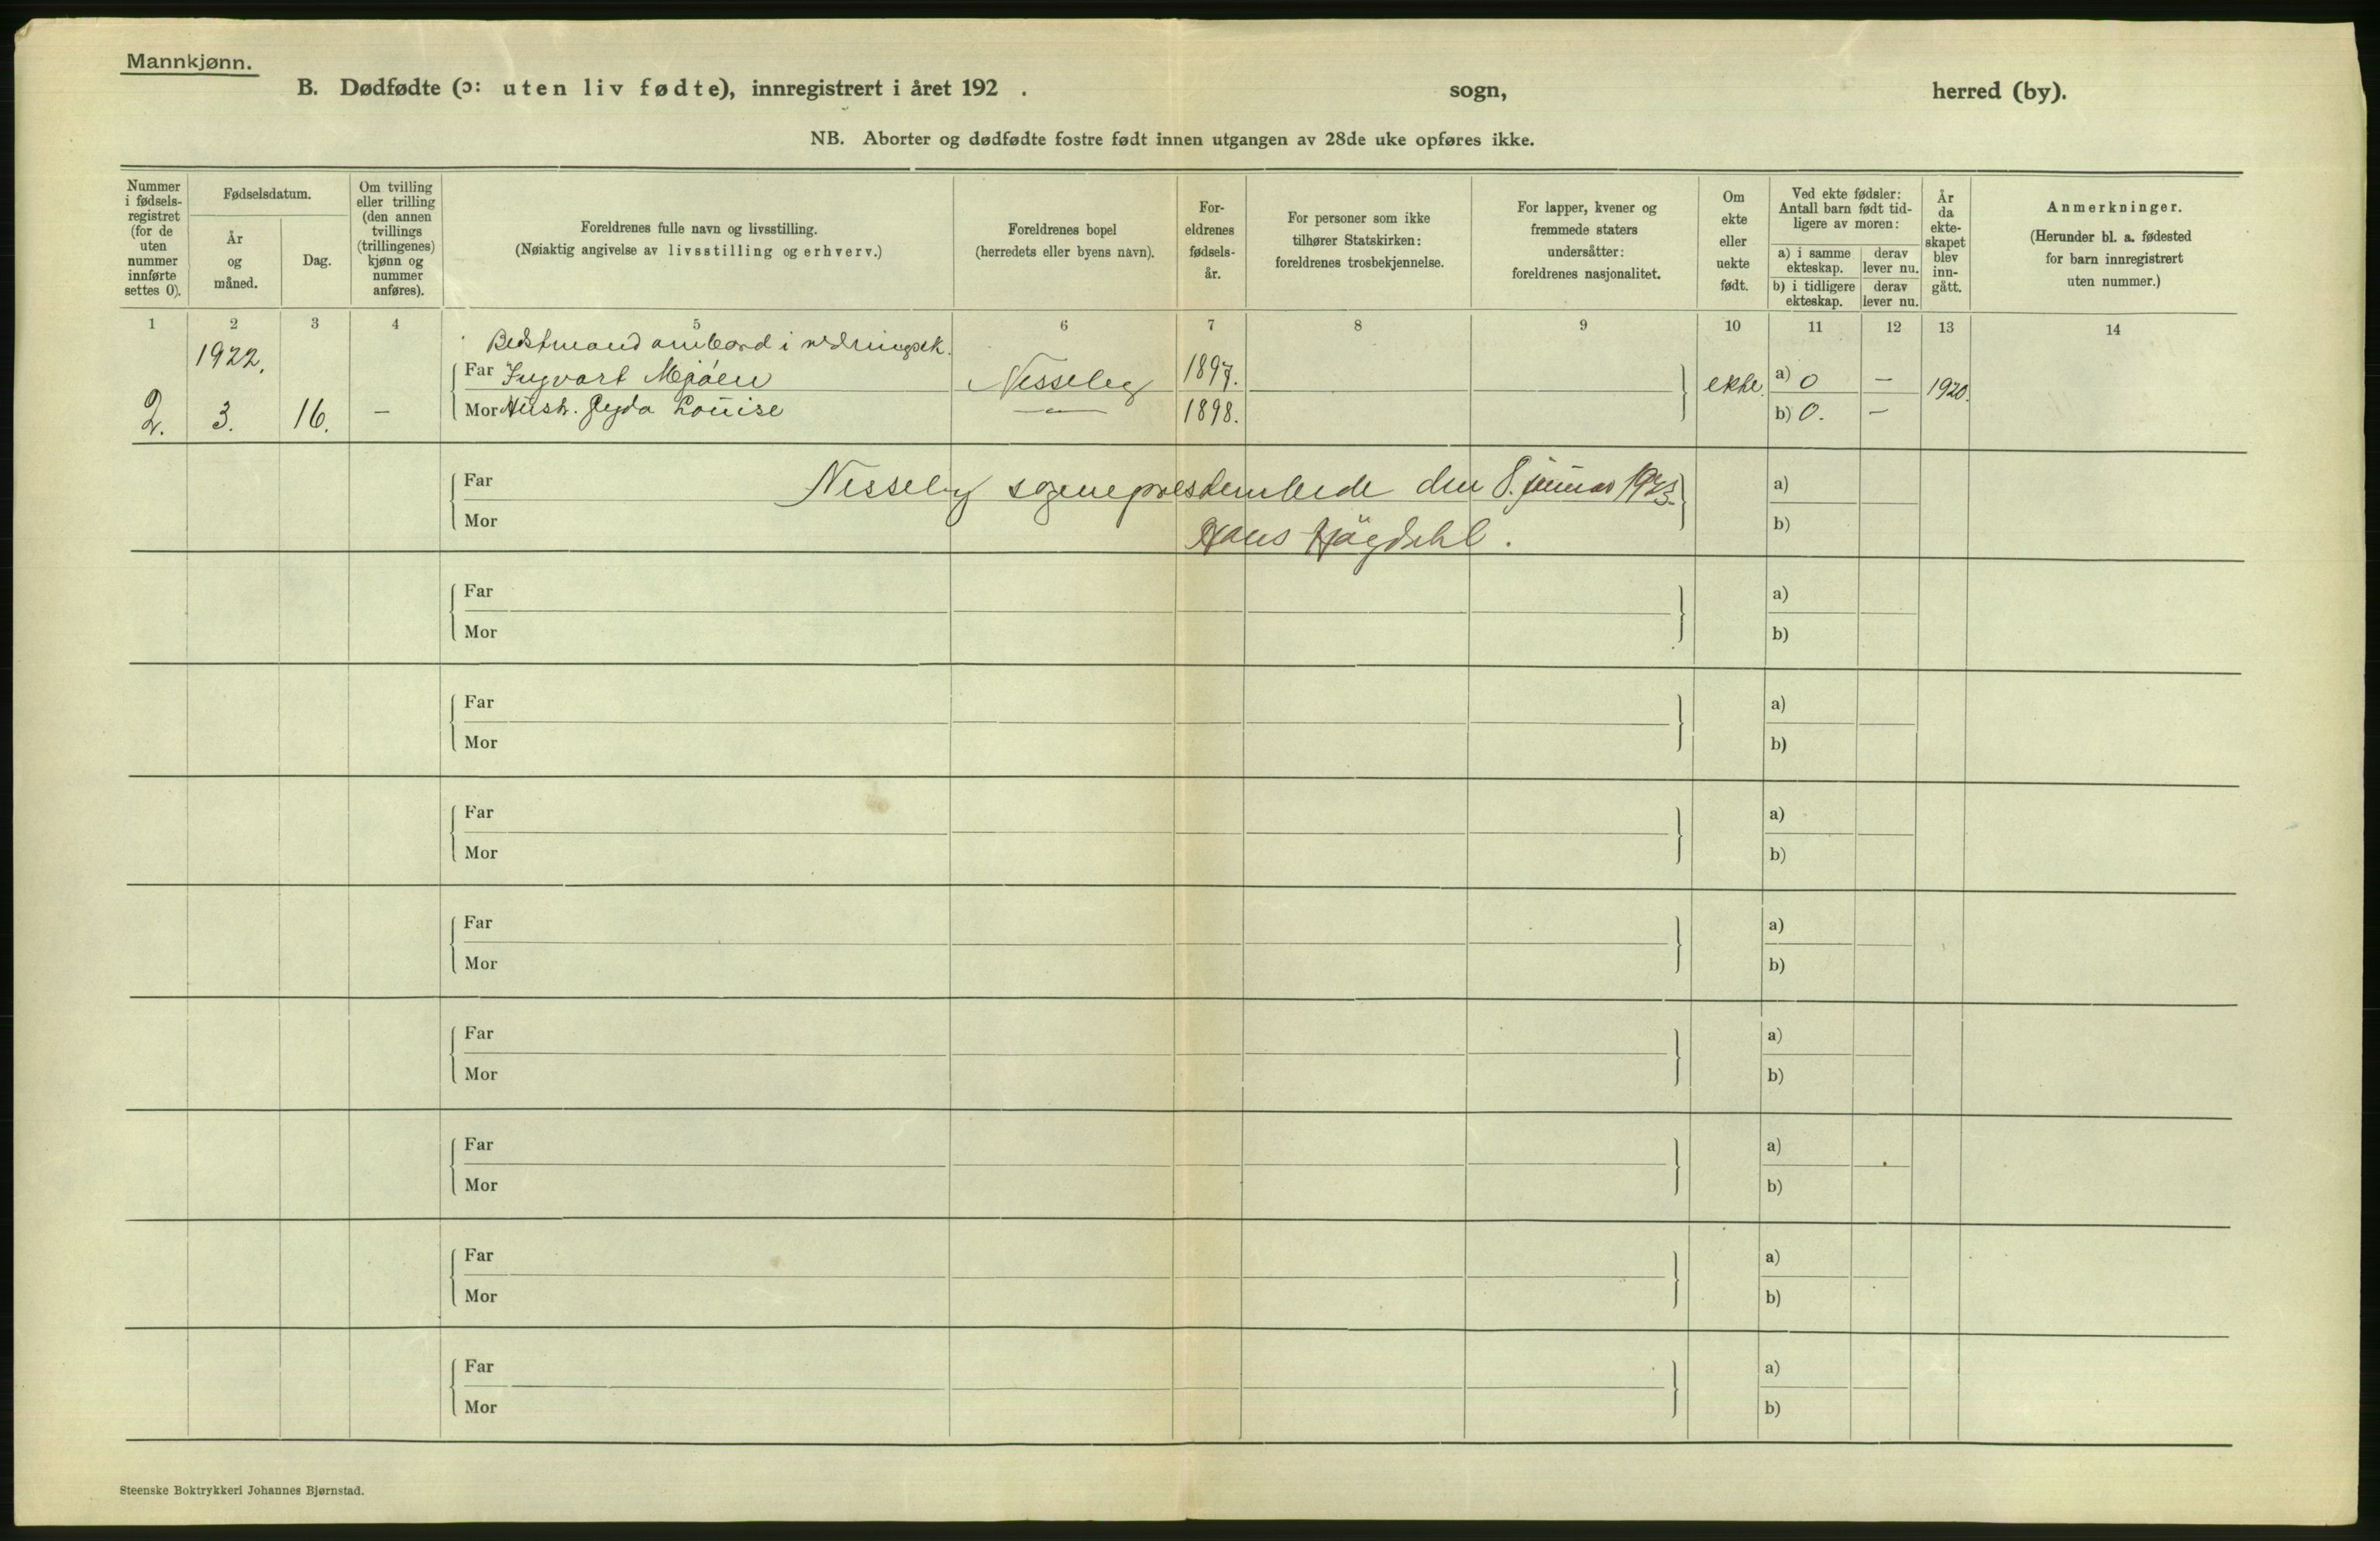 Mannkjønn.
B. Dødfødte (ɔ: uten liv fødte), innregistrert i året 192 . sogn, herred (by).
NB. Aborter og dødfødte fostre født innen utgangen av 28de uke opføres ikke.
Nummer i fødsels- registret (for de uten nummer innførte settes 0).
Fødselsdatum.
År og måned.
Dag.
Om tvilling eller trilling (den annen tvillings (trillingenes) kjønn og nummer anføres).
Foreldrenes fulle navn og livsstilling.
(Nøiaktig angivelse av livsstilling og erhverv.)
Foreldrenes bopel
(herredets eller byens navn).
For- eldrenes fødsels- år.
For personer som ikke tilhører Statskirken: foreldrenes trosbekjennelse.
For lapper, kvener og fremmede staters undersåtter: foreldrenes nasjonalitet.
Om ekte eller uekte født.
Ved ekte fødsler: Antall barn født tid- ligere av moren:
a) i samme ekteskap.
derav lever nu.
b) i tidligere ekteskap.
derav lever nu.
År da ekte- skapet blev inn- gått.
Anmerkninger.
(Herunder bl. a. fødested for barn innregistrert uten nummer.)
1 2 3 4 5 6 7 8 9 10 11 12 13 14
Bedstmand ombord i
1922.
Far Ingvart Mjøen Nesseby 1897. ekte. a) 0 — 1920.
2. 3. 16. — Mor Hustr. Gyda Louise —"— 1898. b) 0. —
Far Nesseby sogneprestembede den 8. januar 1923. a)
Mor Hans Høgdahl. b)
Far a)
Mor b)
Far a)
Mor b)
Far a)
Mor b)
Far a)
Mor b)
Far a)
Mor b)
Far a)
Mor b)
Far a)
Mor b)
Far a)
Mor b)
Steenske Boktrykkeri Johannes Bjørnstad.